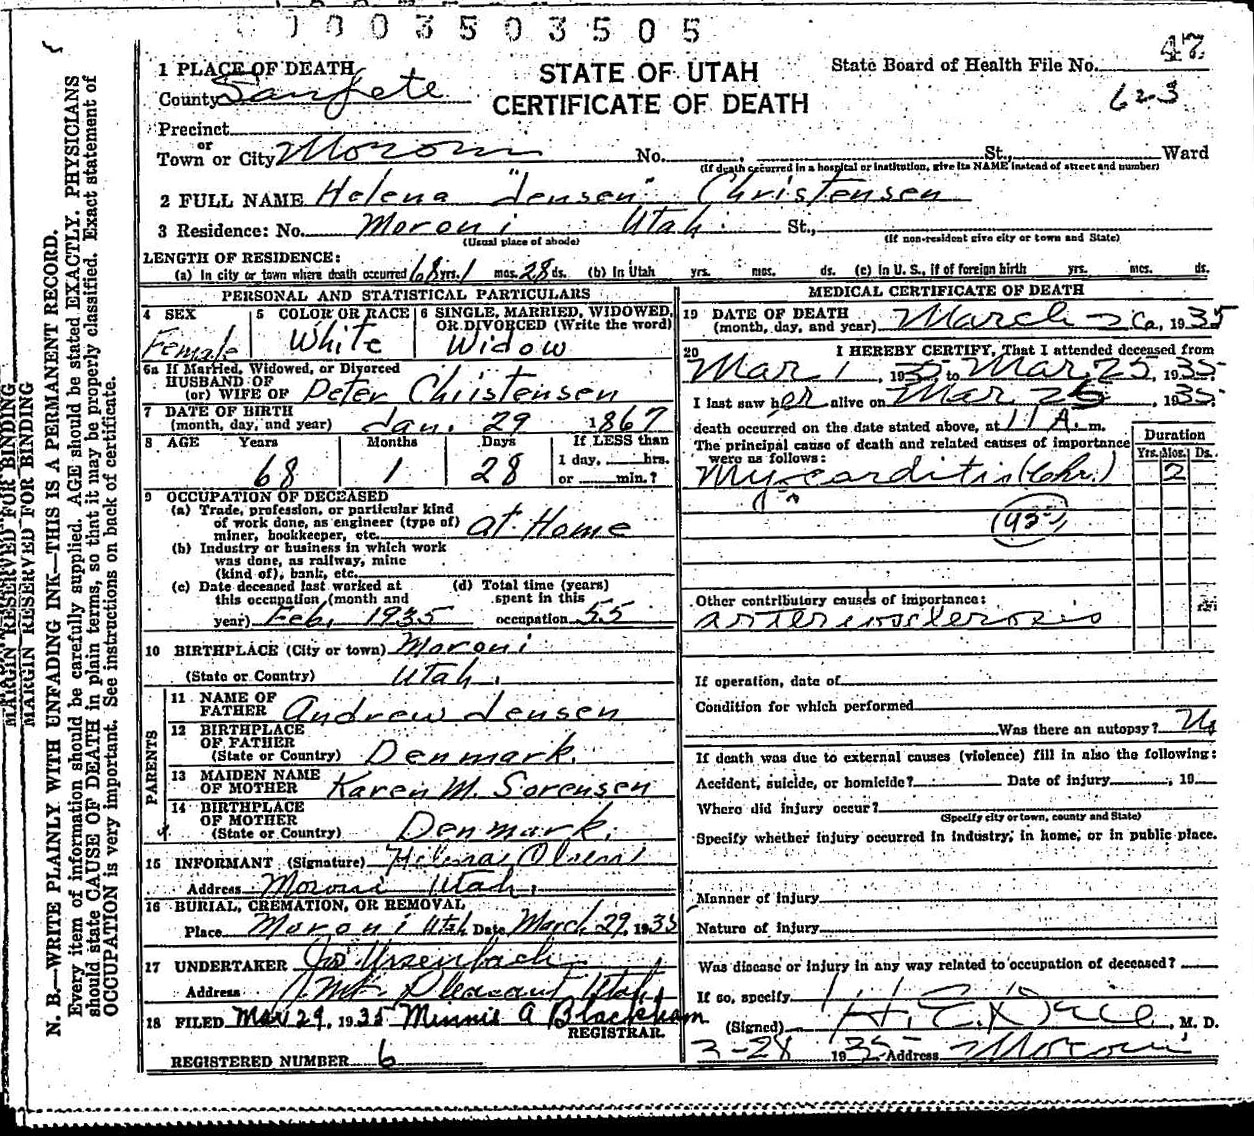 0003503505
1 PLACE OF DEATH
County Sanpete
STATE OF UTAH
CERTIFICATE OF DEATH
State Board of Health File No. 47
623
Precinct
or
Town or City Moroni No. , St., Ward
(If death occurred in a hospital or institution, give its NAME instead of street and number)
2 FULL NAME Helena "Jensen" Christensen
3 Residence: No. Moroni Utah. St.,
(Usual place of abode) (If non-resident give city or town and State)
LENGTH OF RESIDENCE:
(a) In city or town where death occurred 68 yrs. 1 mos. 28 ds. (b) In Utah yrs. mos. ds. (c) In U. S., if of foreign birth yrs. mos. ds.
PERSONAL AND STATISTICAL PARTICULARS
4 SEX
Female
5 COLOR OR RACE
White
6 SINGLE, MARRIED, WIDOWED,
OR DIVORCED (Write the word)
Widow
6a If Married, Widowed, or Divorced
HUSBAND OF
(or) WIFE OF Peter Christensen
7 DATE OF BIRTH
(month, day, and year) Jan. 29 1867
8 AGE Years Months Days If LESS than
1 day, hrs.
68 1 28 or min.?
9 OCCUPATION OF DECEASED
(a) Trade, profession, or particular kind
of work done, as engineer (type of)
miner, bookkeeper, etc. at Home
(b) Industry or business in which work
was done, as railway, mine
(kind of), bank, etc.
(c) Date deceased last worked at
this occupation (month and
year) Feb. 1935
(d) Total time (years)
spent in this
occupation 55
10 BIRTHPLACE (City or town) Moroni
(State or Country) Utah.
PARENTS
11 NAME OF
FATHER Andrew Jensen
12 BIRTHPLACE
OF FATHER
(State or Country) Denmark.
13 MAIDEN NAME
OF MOTHER Karen M. Sorensen
14 BIRTHPLACE
OF MOTHER
(State or Country) Denmark.
15 INFORMANT (Signature) Olsen
Address Moroni Utah.
16 BURIAL, CREMATION, OR REMOVAL
Place Moroni Utah Date March 29, 1935
17 UNDERTAKER
Address Mt. Pleasant Utah
18 FILED Mar 29, 1935 Minnie A Blackham
REGISTRAR.
REGISTERED NUMBER 6
MEDICAL CERTIFICATE OF DEATH
19 DATE OF DEATH
(month, day, and year) March 26, 1935
20 I HEREBY CERTIFY, That I attended deceased from
Mar 1, 1935 to Mar. 25, 1935.
I last saw her alive on Mar. 25, 1935.
death occurred on the date stated above, at 11 A. m.
The principal cause of death and related causes of importance
were as follows:
Duration
Yrs. Mos. Ds.
Myocarditis (Chr.) 2
Other contributory causes of importance:
arteriosclerosis
If operation, date of
Condition for which performed
Was there an autopsy? No
If death was due to external causes (violence) fill in also the following:
Accident, suicide, or homicide? Date of injury , 19
Where did injury occur?
(Specify city or town, county and State)
Specify whether injury occurred in industry, in home, or in public place.
Manner of injury
Nature of injury
Was disease or injury in any way related to occupation of deceased?
If so, specify
(Signed) , M. D.
3-28 1935 Address Moroni
MARGIN RESERVED FOR BINDING
MARGIN RESERVED FOR BINDING
N. B.—WRITE PLAINLY WITH UNFADING INK—THIS IS A PERMANENT RECORD.
Every item of information should be carefully supplied. AGE should be stated EXACTLY. PHYSICIANS
should state CAUSE OF DEATH in plain terms, so that it may be properly classified. Exact statement of
OCCUPATION is very important. See instructions on back of certificate.